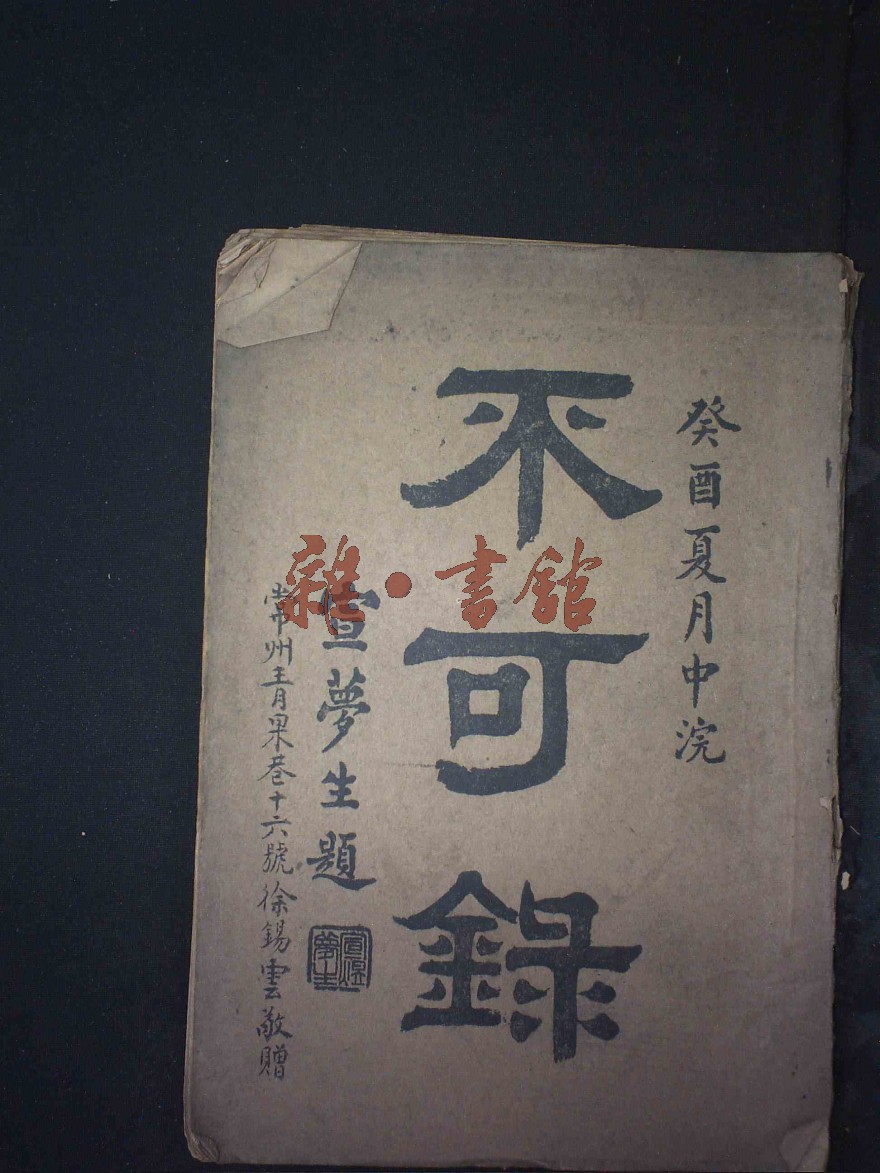 癸酉夏月中浣
不可錄
宣夢生題
常州青果巷十六號徐錫雲敬贈
雜·書館